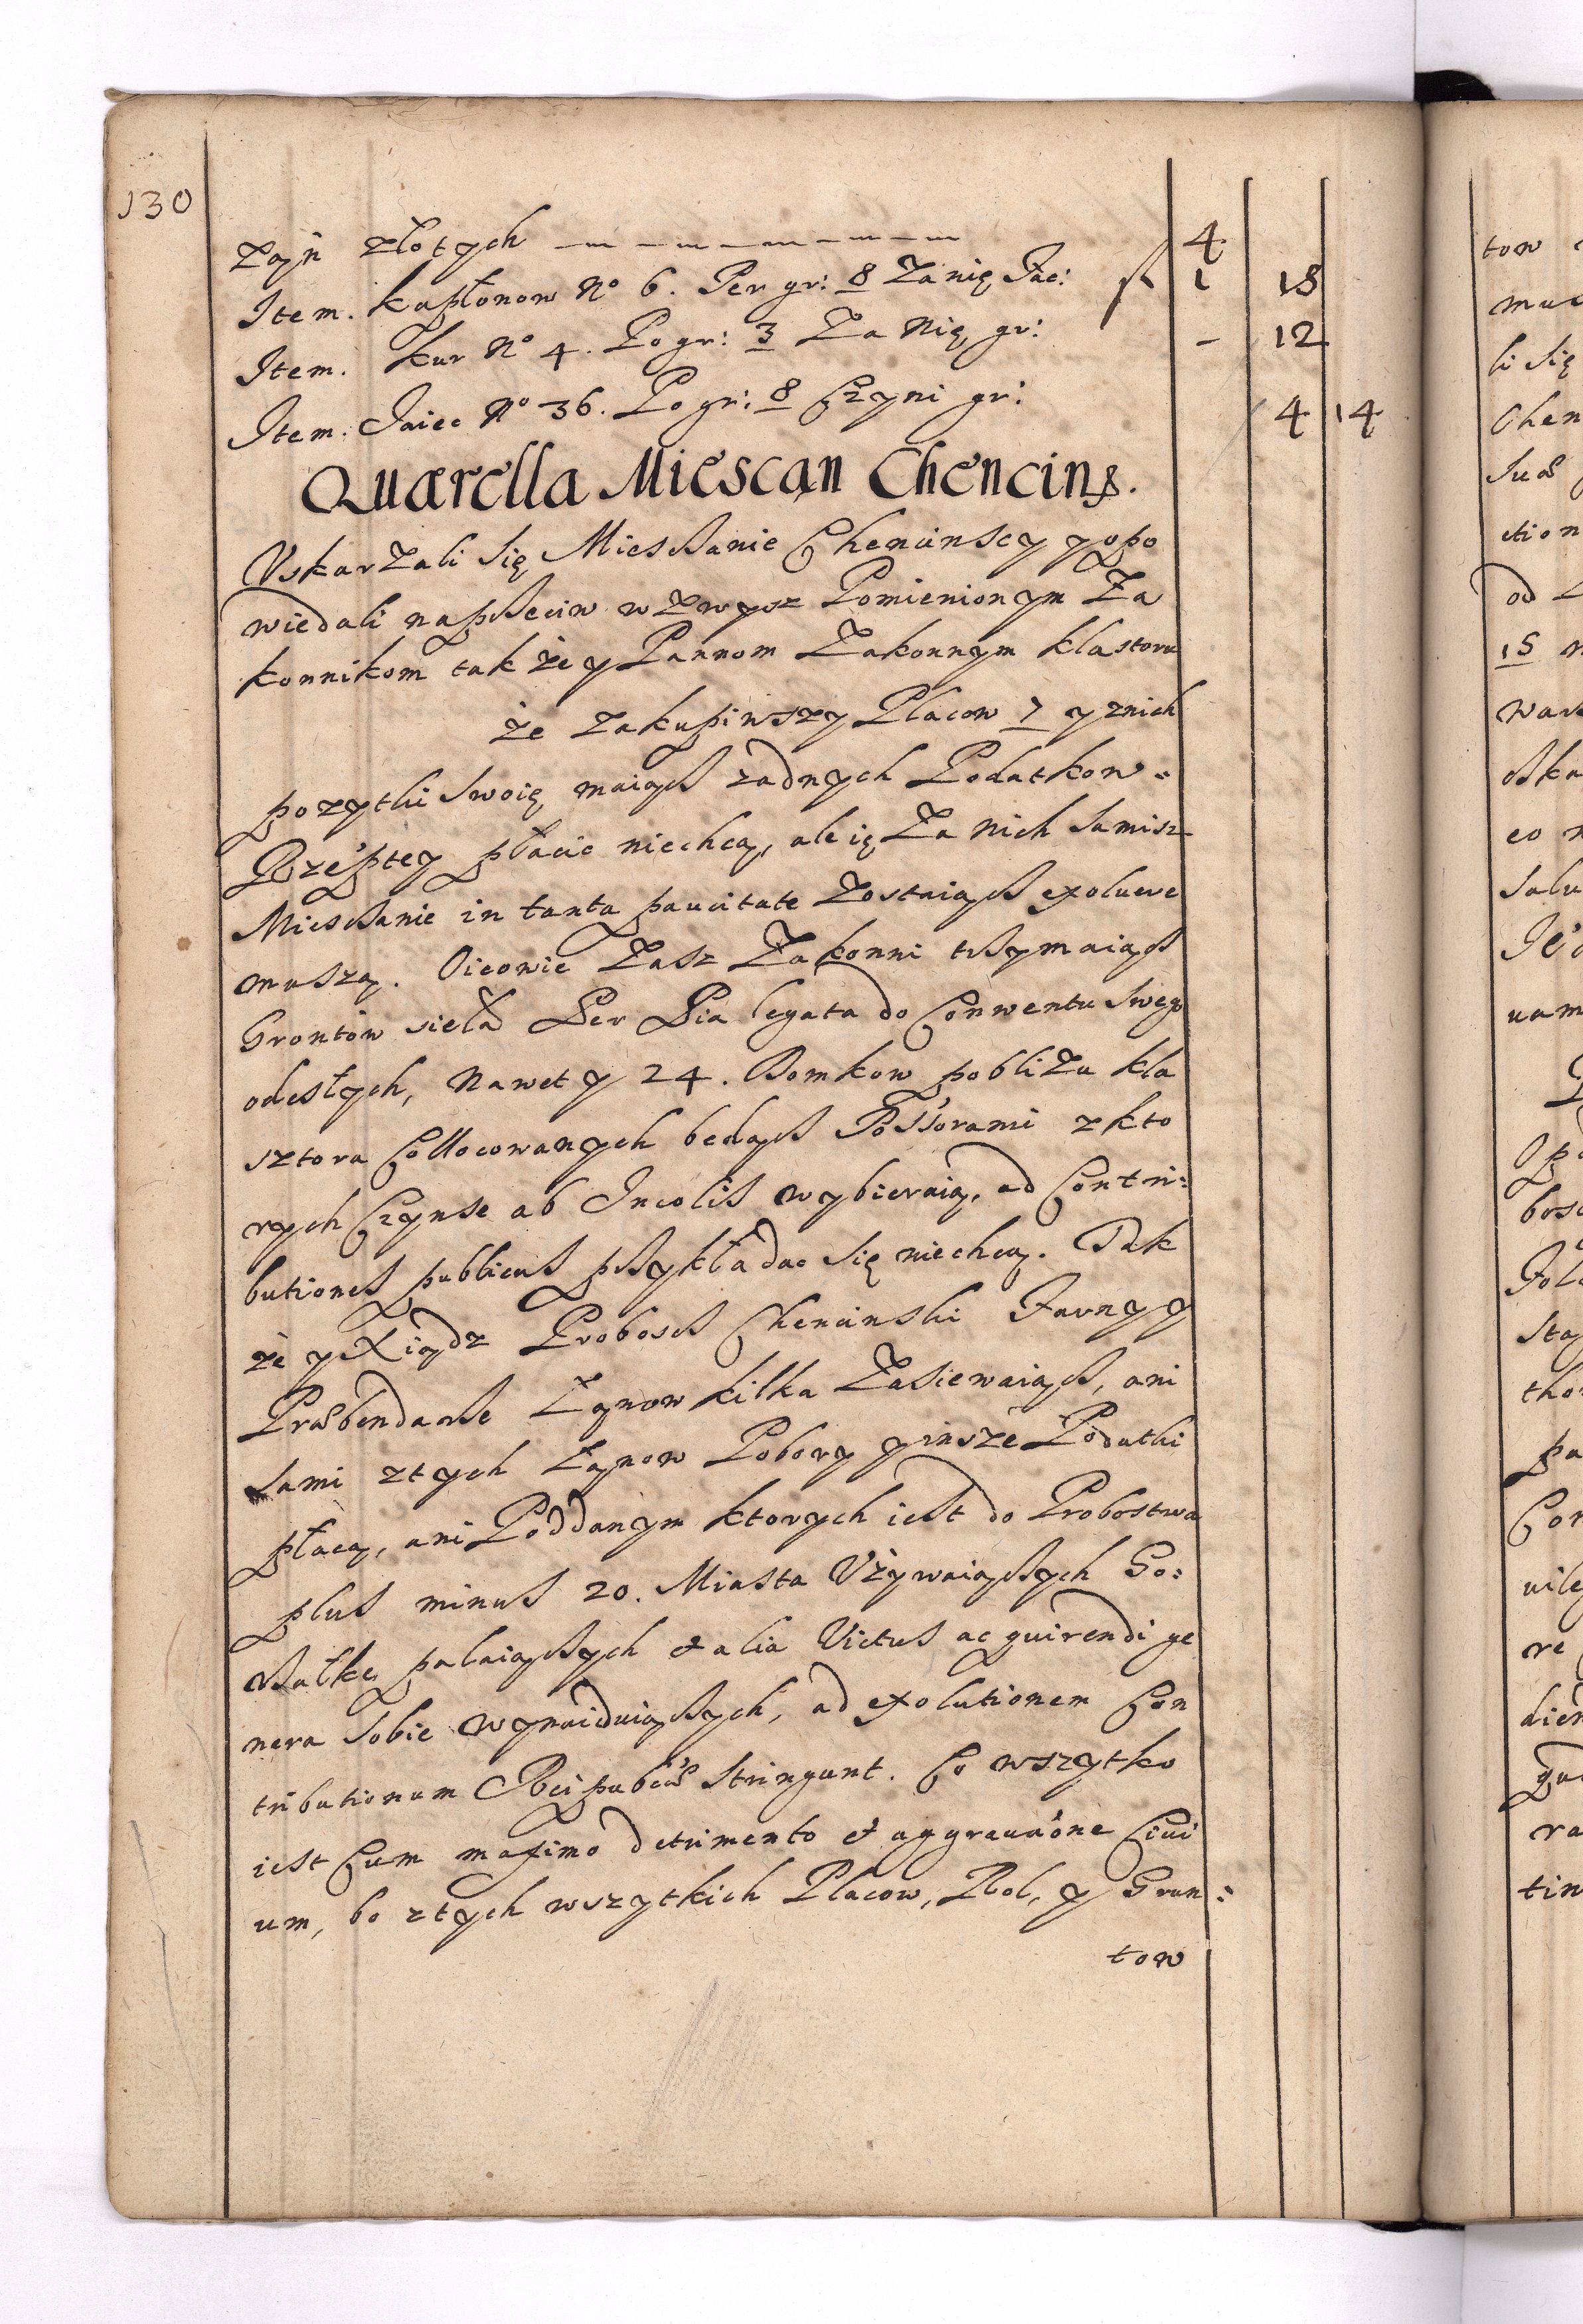 130
Łąń złotych 4
Item. kapłonow No 6. Per gr: 8 Za nię Fac: f 1 18
Item. kur No 4. Po gr: 3 Za Nię, gr: - 12
Item. Jaiec No 36. Po gr: 8 Czyni gr: 4 14
Quærella Miescan Chencins.
Vskarzali się Miesczanie Chencinscy y opo
wiedali naprzeciw wzwysz Pomienionym Za
konnikom tak że y Pannom Zakonnym klastoru
że zakupiwszy Placow 7 y znich
pozytki swoię maiącz zadnych Podatkow
Rzeptey płacic niechcą, ale ię Za nich samisz
Miesczanie in tanta paucitate Zostaiącz exoluere
muszą. Oicowie Zasz Zakonni trzymaiącz
Grontow siełã Per Pia legata do Conwentu swego
odeszłych, Nawet y 24. Domkow pobliZu kla
sztora Collocowanych bedącz Possorami z kto
rych Czynsze ab Incolis wybieraią, ad Contri:
butiones publicas przykładac się niechcą. Tak
że y Xiądz Proboscz Chencinski Farny y
Præbendarze Łanow kilka Zasiewaiącz, ani
sami ztych Łanow Pobory y insze Podatki
płacą, ani Poddanym ktorych iest do Probostwa
plus minus 20. Miasta Vżywaiączych Go:
rzałkę palaiączych et alia Victus acquirendi ge
nera sobie wynaiduiączych, ad exolutionem Con
tributionum Rei pubcæ stringunt. Co wszytko
iest Cum maximo detrimento et aggrauaone Ciui
um, bo ztych wszytkich Placow, Rol, y Grun:
tow